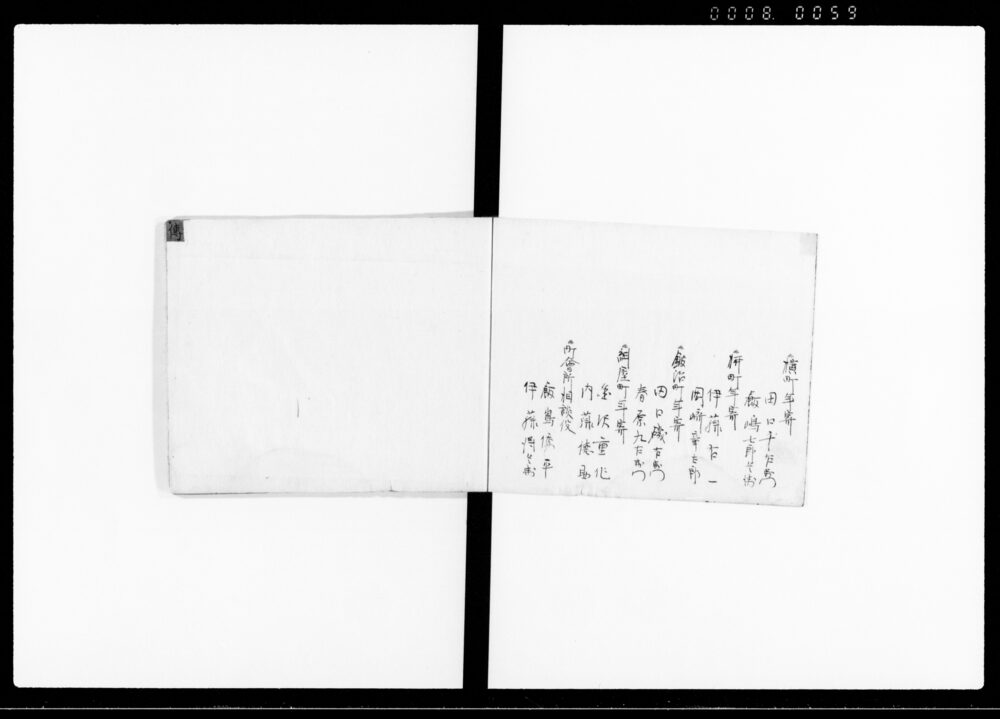 0008. 0059
横町年寄
田口十左衛門
飯嶋七郎兵衛
年寄
伊藤右一
岡崎幸
鍛冶町年寄
田口磯右衛門
春原九右衛門
紺屋町年寄
金沢重作
内藤徳助
町会所相談役
飯島億平
伊藤得兵衛